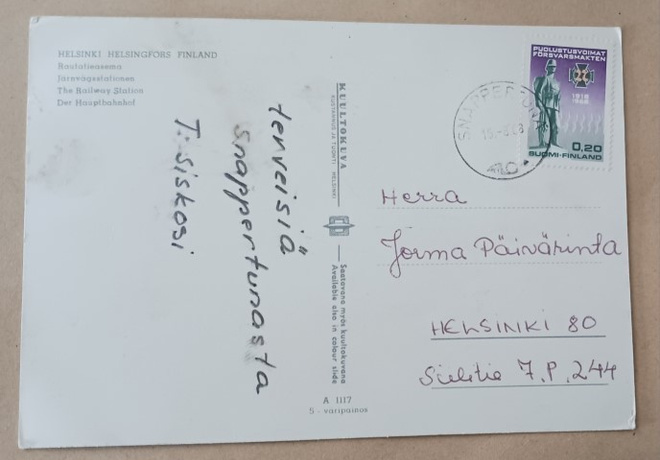 HELSINKI HELSINGFORS FINLAND
Rautatieasema
Järnvägsstationen
The Railway Station
Der Hauptbahnhof
terveisiä
Snappertunasta
T. Siskosi
KUULTOKUVA
KUSTANNUS JA TUONTI · HELSINKI
Saatavana myös kuultokuvana
Available also in colour slide
A 1117
S - väripainos
PUOLUSTUSVOIMAT
FÖRSVARSMAKTEN
1918
1968
0,20
SUOMI-FINLAND
Herra
Jorma Päivärinta
HELSINKI 80
7.P.244